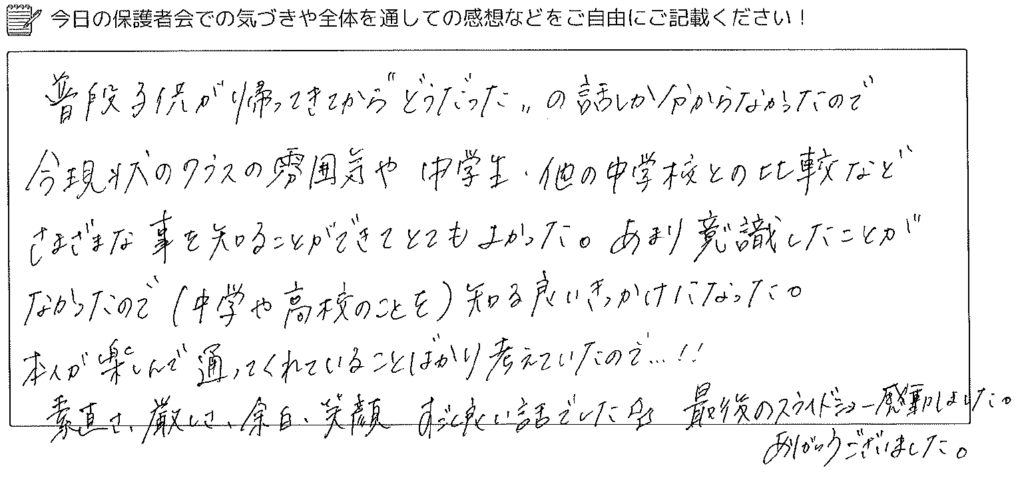 今日の保護者会での気づきや全体を通しての感想などをご自由にご記載ください！
普段子供が帰ってきてから"どうだった"の話しか分からなかったので
今現状のクラスの雰囲気や中学生・他の中学校との比較など
さまざまな事を知ることができてとてもよかった。あまり意識したことが
なかったので(中学や高校のことを)知る良いきっかけになった。
本人が楽しんで通ってくれていることばかり考えていたので…!!
素直さ、厳しさ、余白、笑顔 すごく良い話でした☆ 最後のスライドショー感動しました。
ありがとうございました。